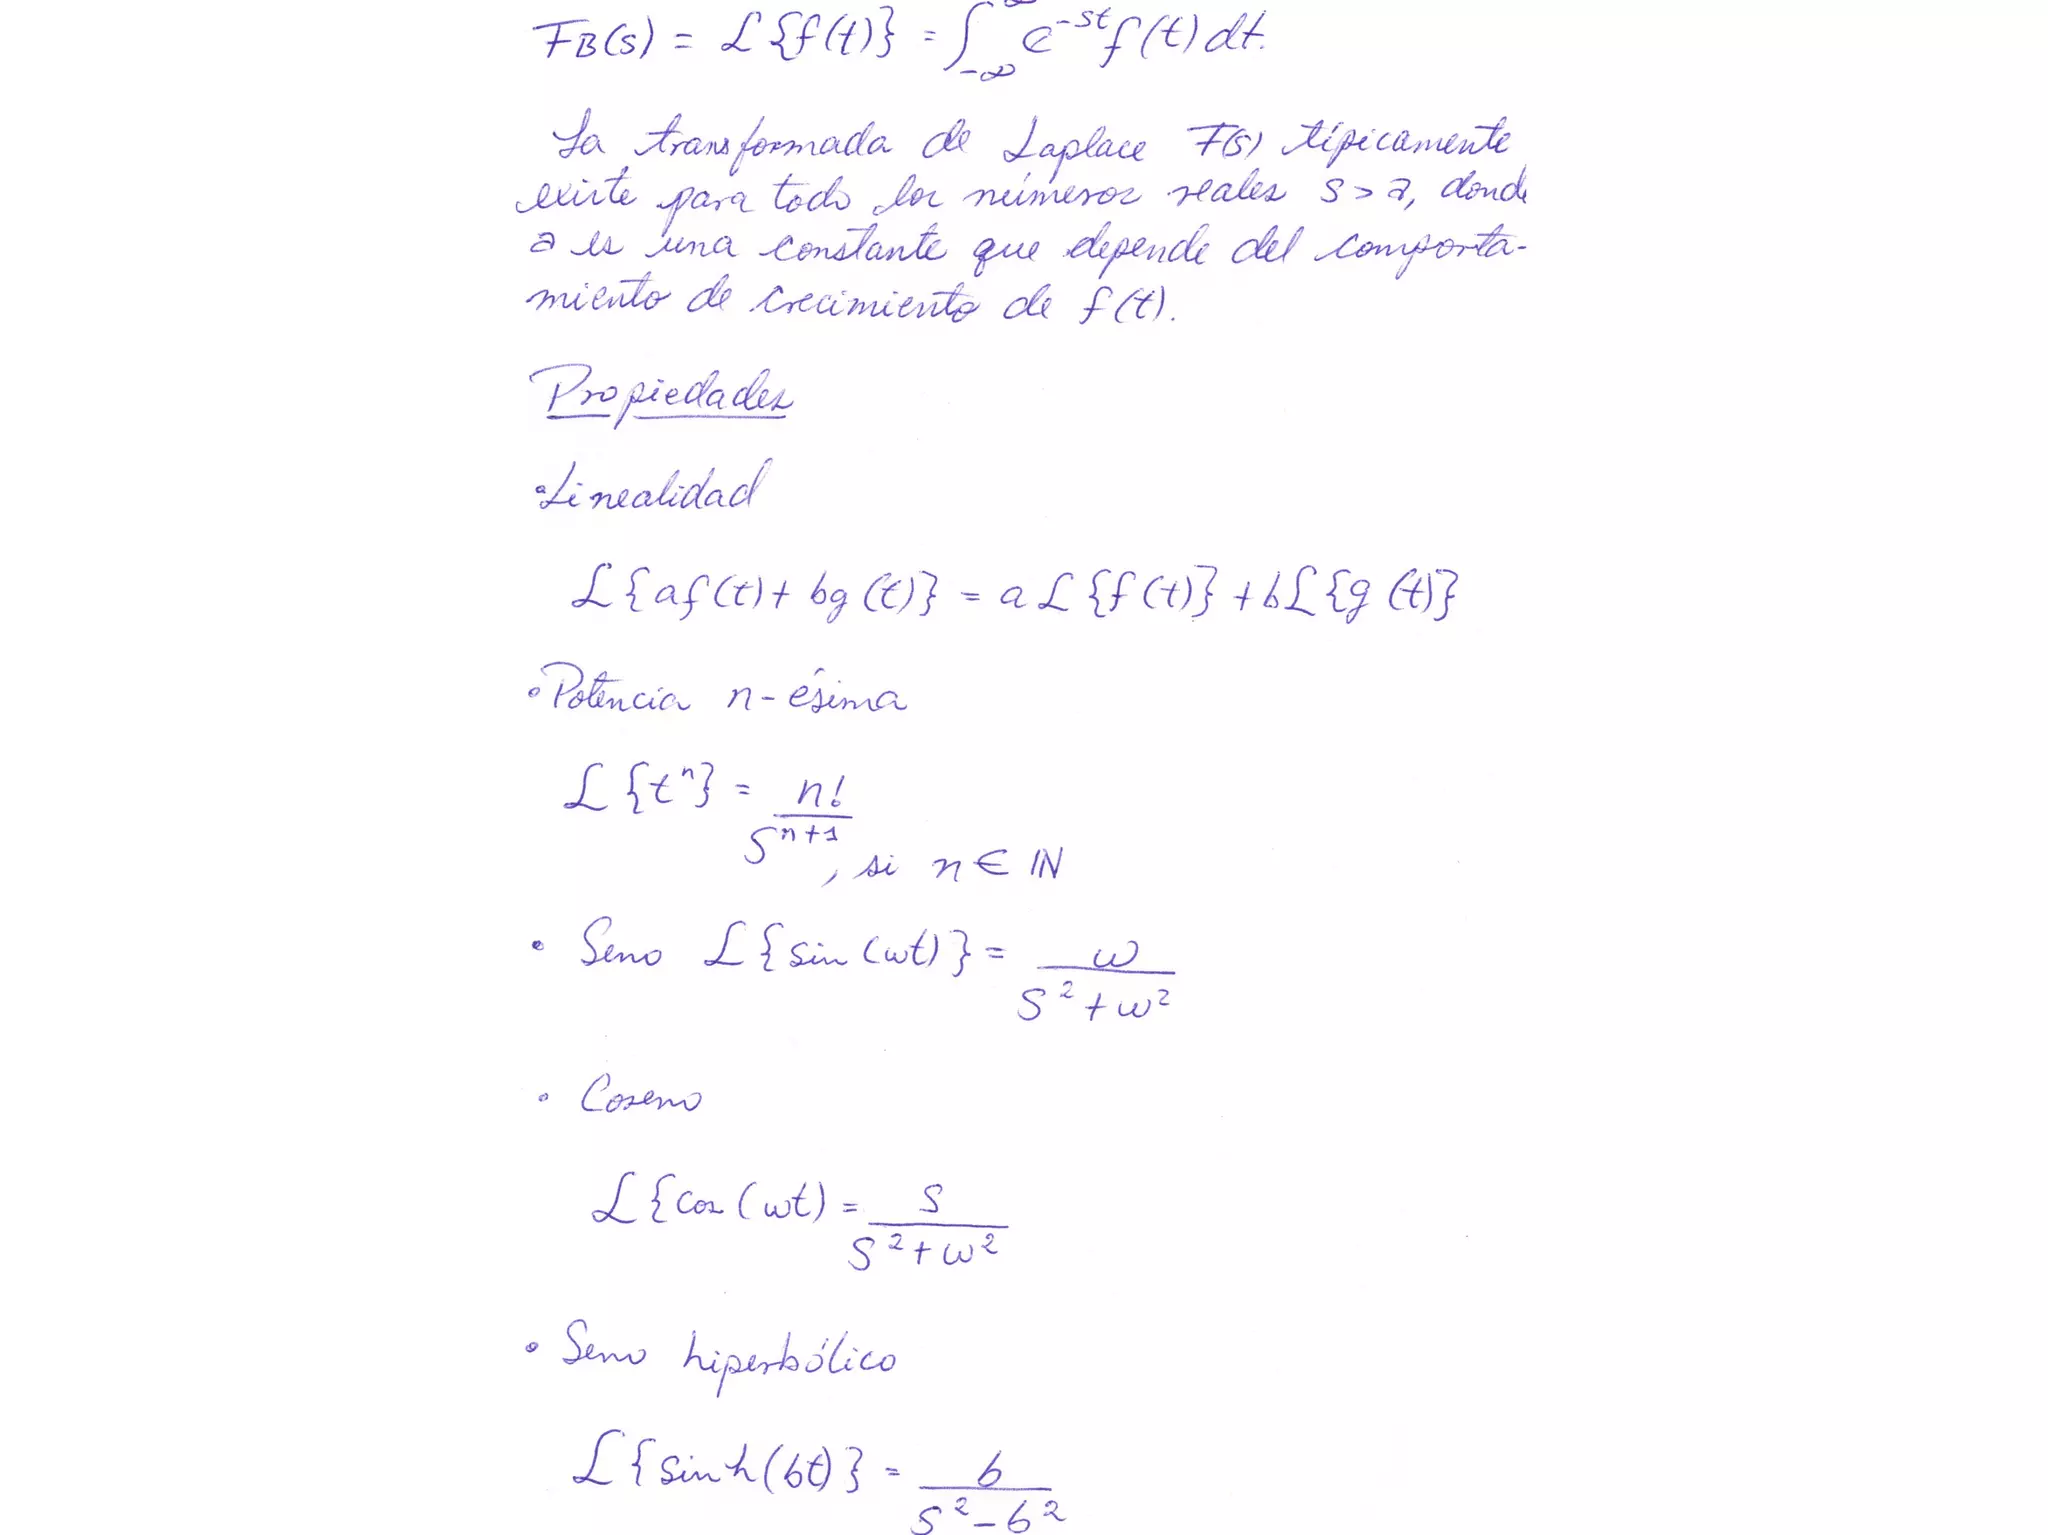 F_B(s) = ℒ{f(t)} = ∫_{-∞}^{∞} e^{-st} f(t) dt.
La transformada de Laplace F(s) típicamente
existe para todo los números reales s > a, donde
a es una constante que depende del comporta-
miento de crecimiento de f(t).
Propiedades
• Linealidad
ℒ{af(t) + bg(t)} = aℒ{f(t)} + bℒ{g(t)}
• Potencia n-ésima
ℒ{t^n} = n!/s^{n+1}, si n ∈ ℕ
• Seno ℒ{sin(ωt)} = ω/(s² + ω²)
• Coseno
ℒ{cos(ωt) = s/(s² + ω²)
• Seno hiperbólico
ℒ{sinh(bt)} = b/(s² - b²)